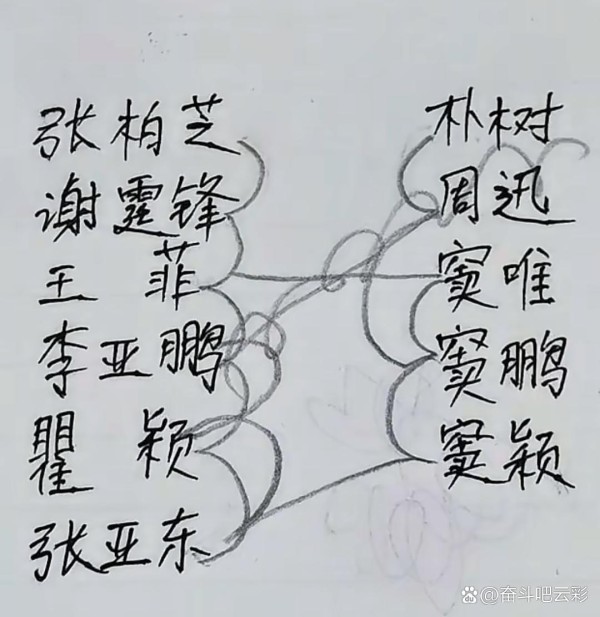 张柏芝 朴树
谢霆锋 周迅
王菲 窦唯
李亚鹏 窦鹏
瞿颖 窦颖
张亚东
奋斗吧云彩